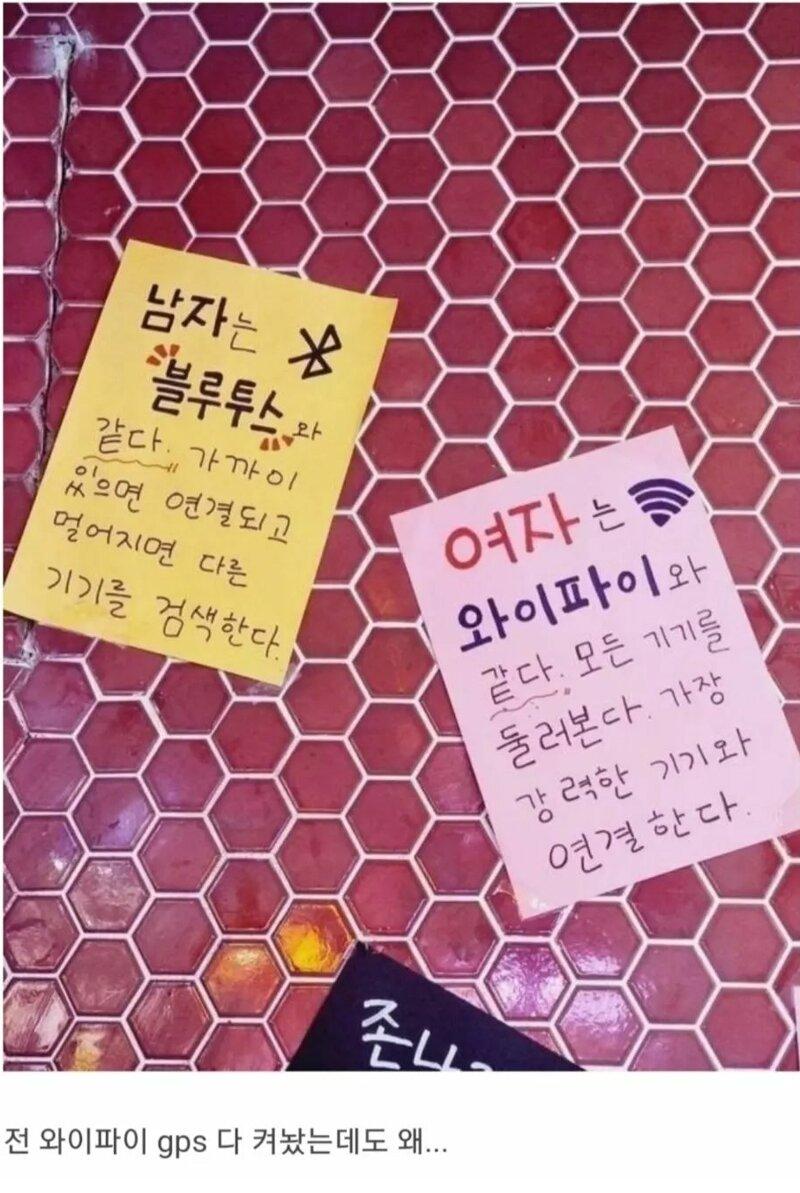 남자는
블루투스와
같다. 가까이
있으면 연결되고
멀어지면 다른
기기를 검색한다.
여자는
와이파이와
같다. 모든 기기를
둘러본다. 가장
강력한 기기와
연결한다.
존나
전 와이파이 gps 다 켜놨는데도 왜...